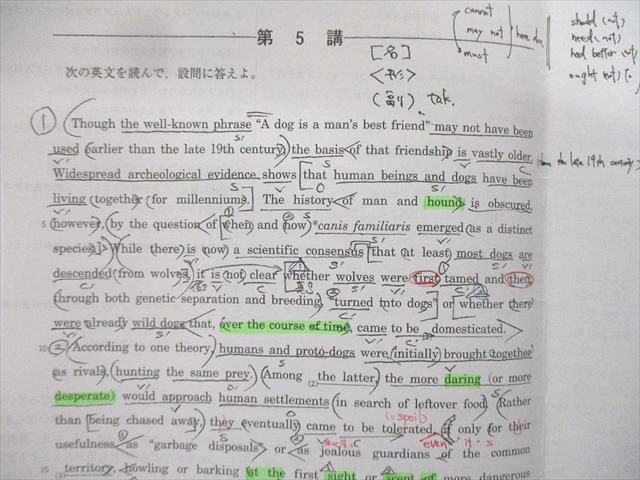 第 5 講
cannot
may not
must
should (not)
need (not)
had better (not)
ought not
[名]
<形>
(副)
次の英文を読んで、設問に答えよ。
① Though the well-known phrase “A dog is a man's best friend” may not have been
used earlier than the late 19th century, the basis of that friendship is vastly older.
than the late 19th century
Widespread archeological evidence shows that human beings and dogs have been
living together for millennia. The history of man and hound is obscured,
5 however, by the question of when and how *canis familiaris emerged as a distinct
species. While there is now a scientific consensus that at least most dogs are
descended from wolves, it is not clear whether wolves were first tamed and then,
through both genetic separation and breeding, “turned into dogs” or whether there
were already wild dogs that, over the course of time, came to be domesticated.
10 ② According to one theory, humans and proto-dogs were initially brought together
as rivals, hunting the same prey. Among (2) the latter, the more daring (or more
desperate) would approach human settlements in search of leftover food. Rather
than being chased away, they eventually came to be tolerated, if only for their
even
usefulness as “garbage disposals” or as jealous guardians of the common
15 territory, howling or barking at the first sight or scent of more dangerous